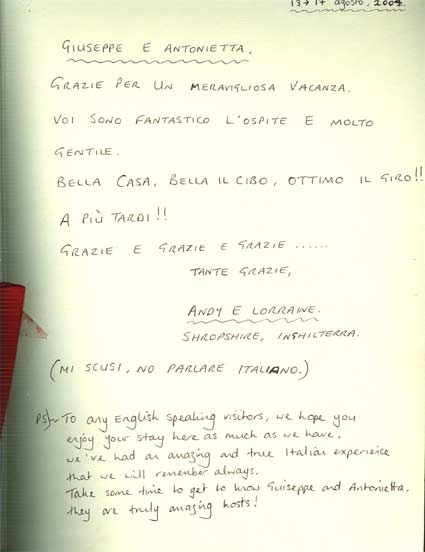 13 → 17 agosto, 2004.
GIUSEPPE E ANTONIETTA.
GRAZIE PER UN MERAVIGLIOSA VACANZA.
VOI SONO FANTASTICO L'OSPITE E MOLTO
GENTILE.
BELLA CASA, BELLA IL CIBO, OTTIMO IL GIRO!!
A PIÙ TARDI!!
GRAZIE E GRAZIE E GRAZIE ......
TANTE GRAZIE,
ANDY E LORRAINE.
SHROPSHIRE, INGHILTERRA.
(MI SCUSI, NO PARLARE ITALIANO.)
PS) To any English speaking visitors, we hope you
enjoy your stay here as much as we have.
we've had an amazing and true Italian experience
that we will remember always.
Take some time to get to know Guiseppe and Antonietta,
they are truly amazing hosts!